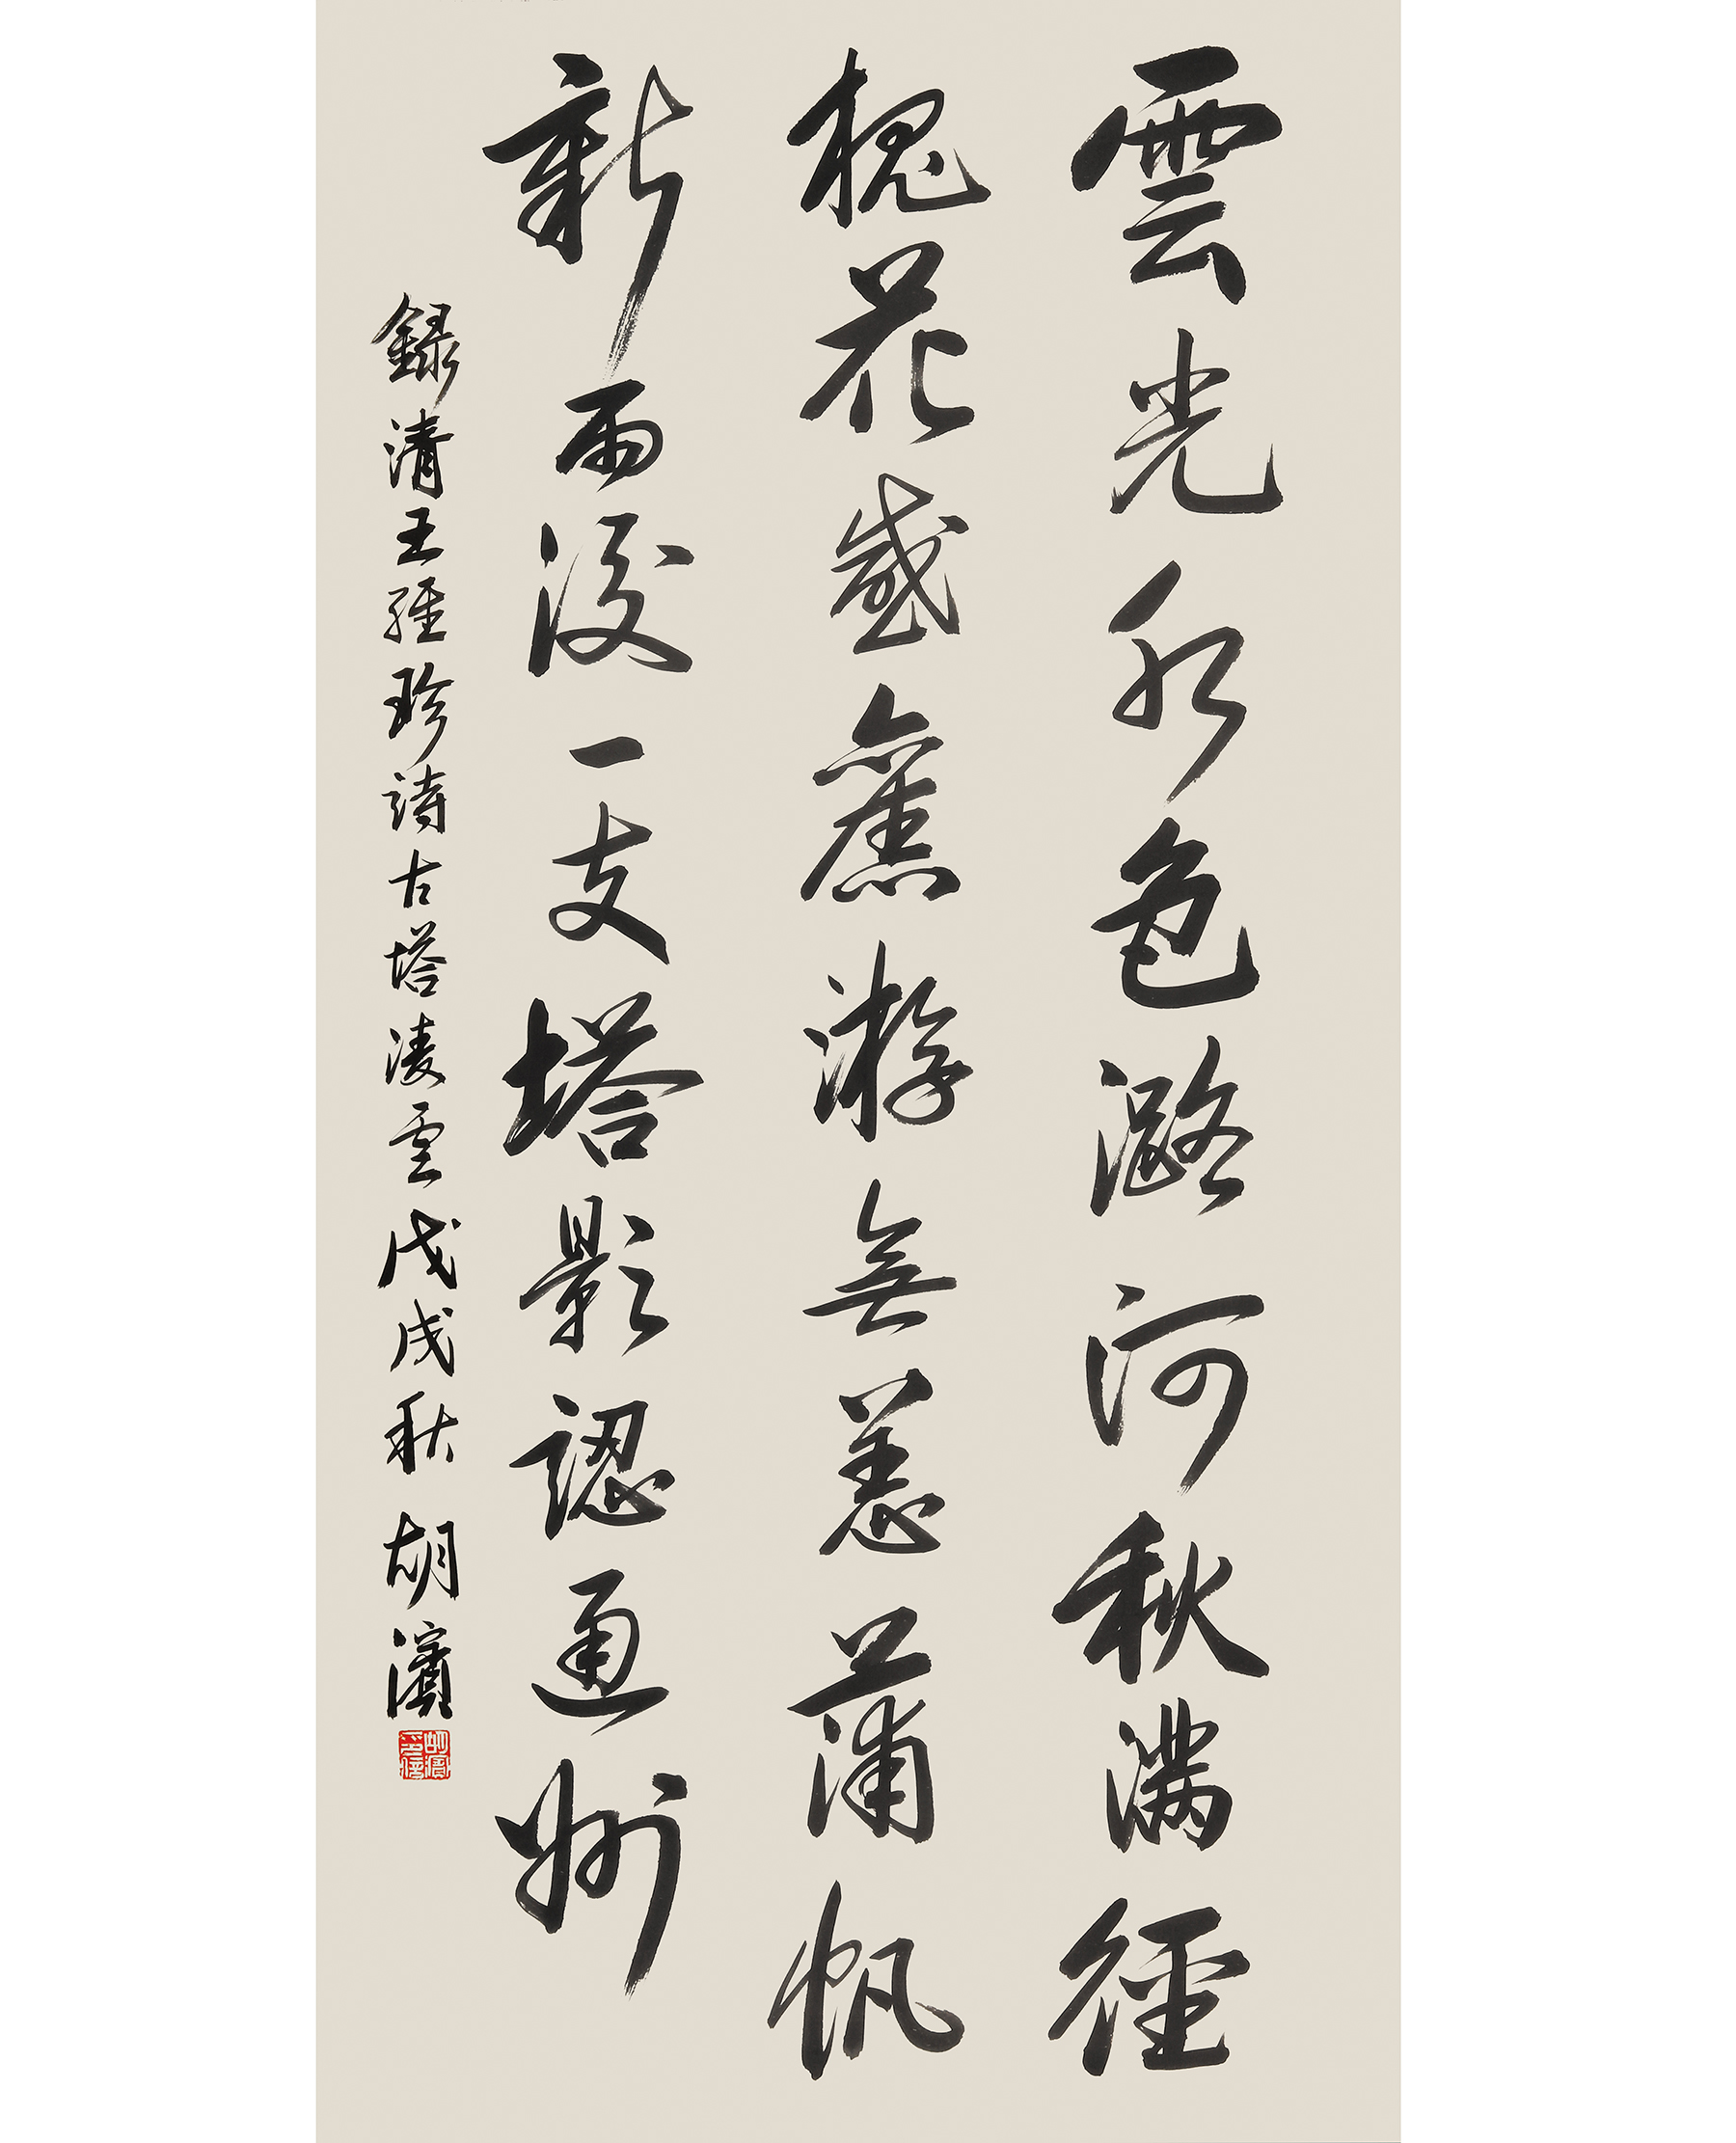 雲光水色潞河秋滿徑
槐花感舊游無恙蒲帆
新雨後一支塔影認通州
録清王維珍詩古塔凌雲戊戌秋 胡濱
胡濱印信